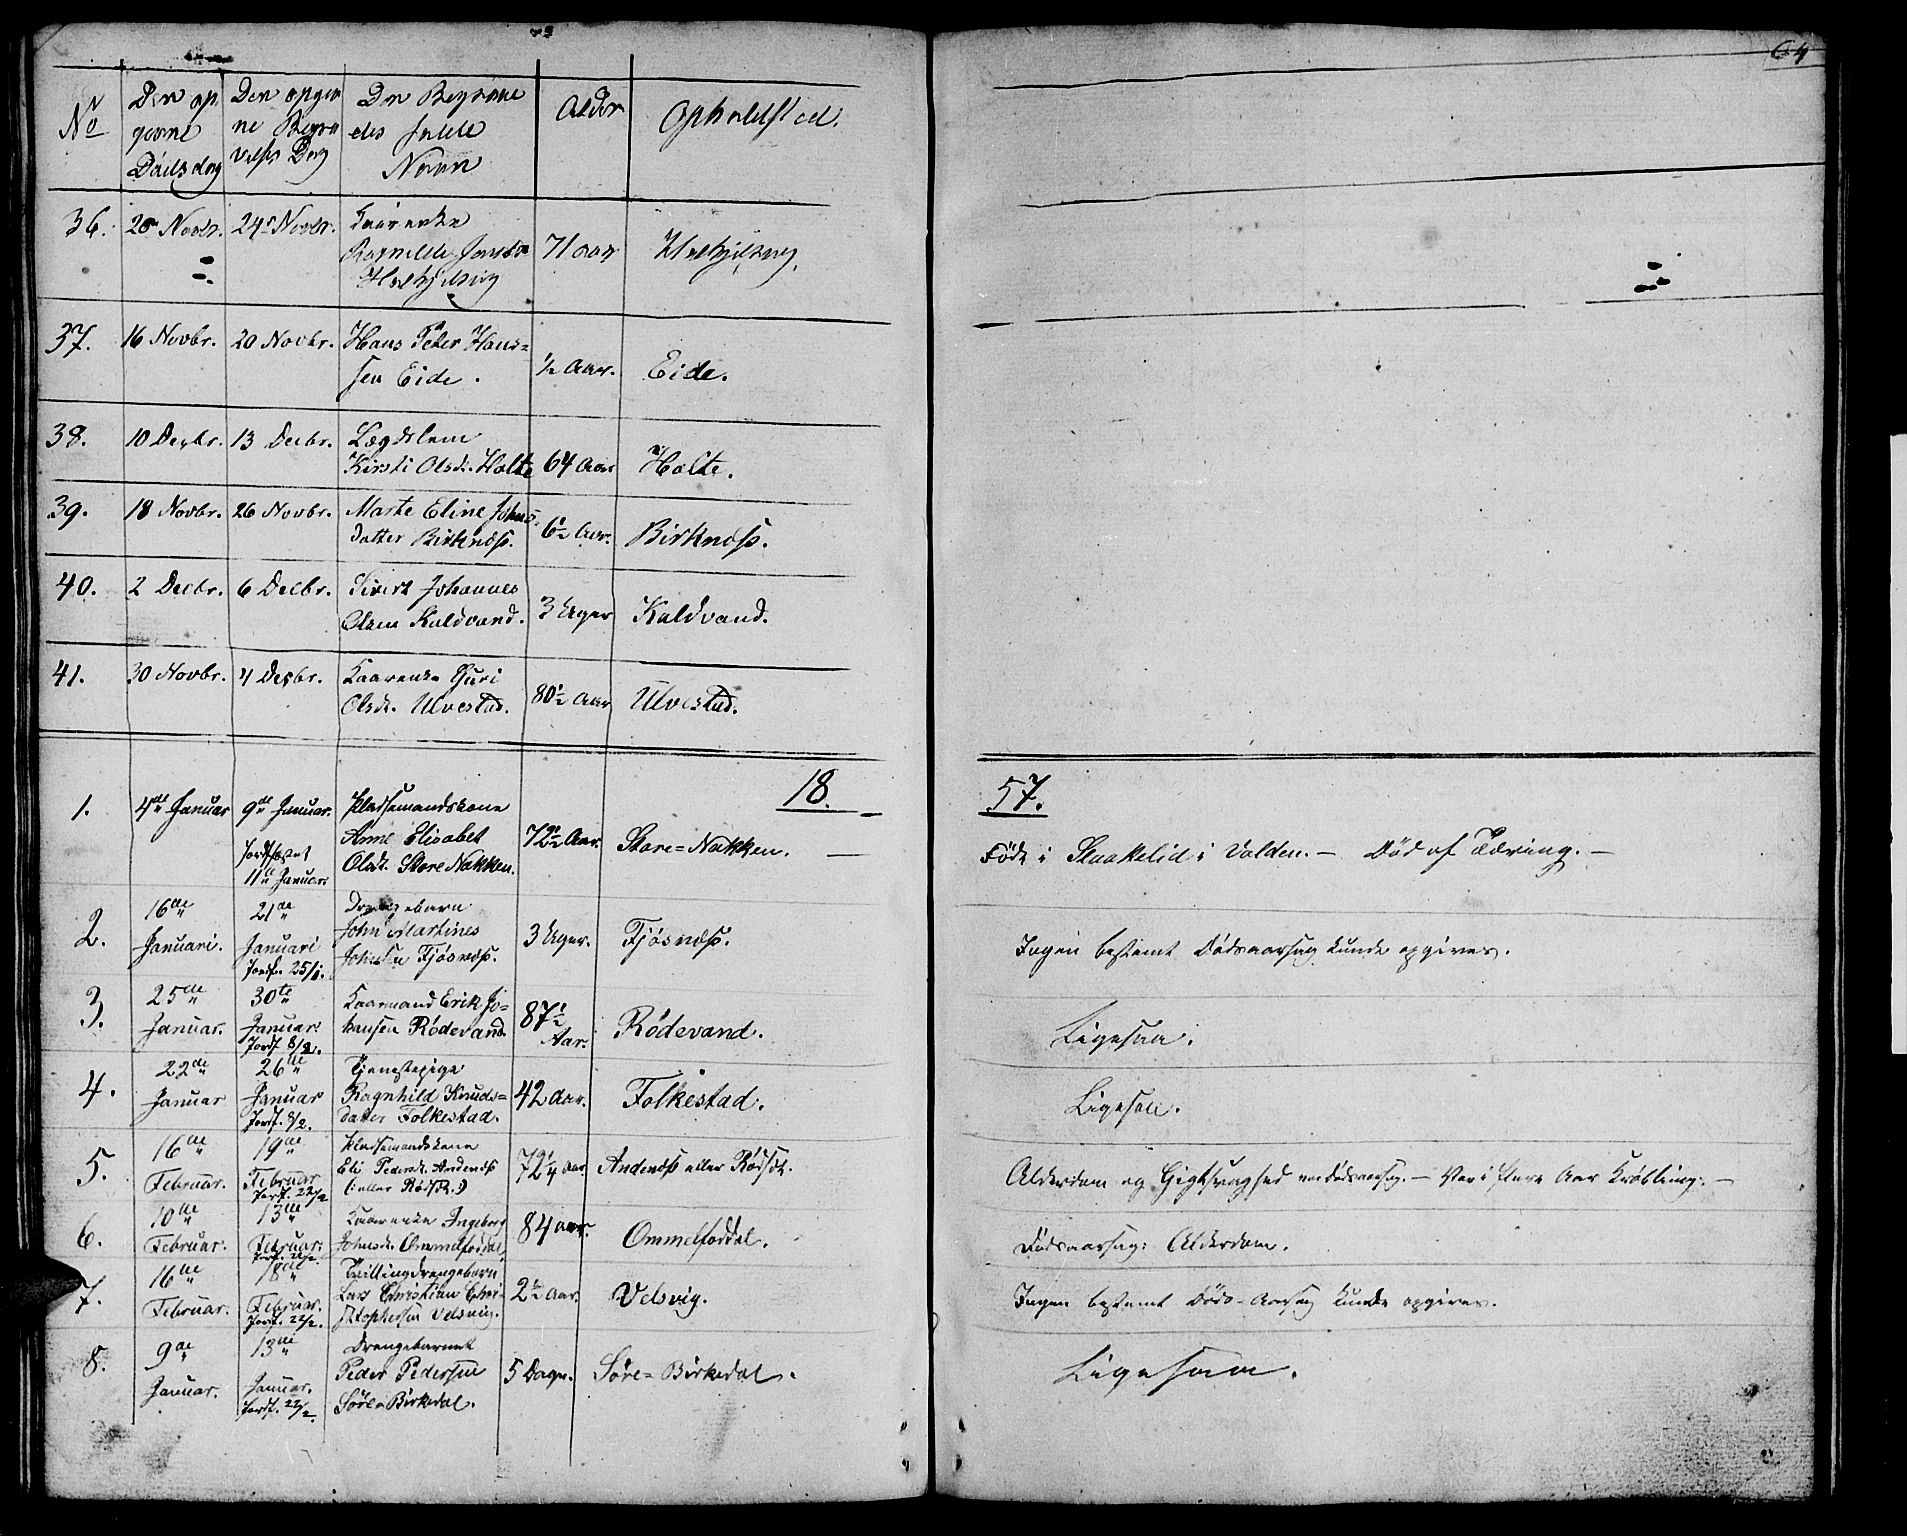 64
No
Den op
givne
Dødsdag
Den opgiv
ne Begra
velses Dag
De Begrave
des fulde
Navn
Alder
Opholdsted.
36. 20 Novbr. 24de Novbr. Kaarenke
Ragnilde Jonsdr 71 aar
37. 16 Novbr. 20 Novbr. Hans Peter Hans=
sen Eide. ½ Aar. Eide.
38. 10 Decbr. 13 Decbr. Lægdslem
Kirsti Olsdr. Holte 64 Aar Holte.
39. 18 Novbr. 26 Novbr. Marte Eline Johns=
datter Birknæss. 6½ Aar. Birknæss.
40. 2 Decbr. 6 Decbr. Sivert Johannes
Olsen Kaldvand. 3 Uger Kaldvand.
41. 30 Novbr. 4 Decbr. Kaarenke Guri
Olsdr. Ulvestad. 80½ Aar Ulvestad.
18 57.
1. 4de Januar 9de Januar. Pladsemandskone
Jordfæstet
11te Januar
Anne Elisabet
Olsdr. Store Nakken. 72½ Aar. Store=Nakken. —
Født i Staakelid i Volden. — Død af Tæring. —
2. 16de Januari. 21de Januari
Jordf. 25/1.
Drengebarn
John Martines
Johnsen Fjøsnæss. 3 Uger. Fjøsnæss.
Ingen bestemt Dødsaarsag kunde opgives.
3. 25de Januar. 30te Januar.
Jordf. 8/2.
Kaarmand Erik Jo=
hansen Rødevand. 87½ Aar. Rødevand.
Ligesaa.
4. 22de Januar 26de Januar
Jordf. 8/2.
Tjenestepige
Ragnhild Knuds=
datter Folkestad. 42 Aar. Folkestad.
Ligesaa.
5. 16de Februar. 19de Februar
Jordf. 22/2
Pladsemandskone
Eli Pedersdr. Andenæs
(: eller Rødsæt.:) 72¼ Aar Andenæs eller Rødsæt.
Alderdom og Gigtsvaghed var dødsaarsag. — Var i flere Aar Krøbling. —
6. 10de Februar. 13de Februar.
Jordf. 22/2.
Kaarenke Ingeborg
Johnsdr. Ommelfoddal, 84 aar. Ommelfoddal.
Dødsaarsag: Alderdom.
7. 16de Februar. 18de Februar.
Jordf. 22/2.
Tvillingdrengebarn
Lars Christian Chri=
stophersen Velsvig. 2½ Aar. Velsvig.
Ingen bestemt Døds-Aarsag kunde opgives.
8. 9de Januar. 13de Januar.
Jordf. 22/2.
Drengebarnet
Peder Pedersen
Søre=Birkedal. 5 Dage. Søre=Birkedal.
Ligesaa.